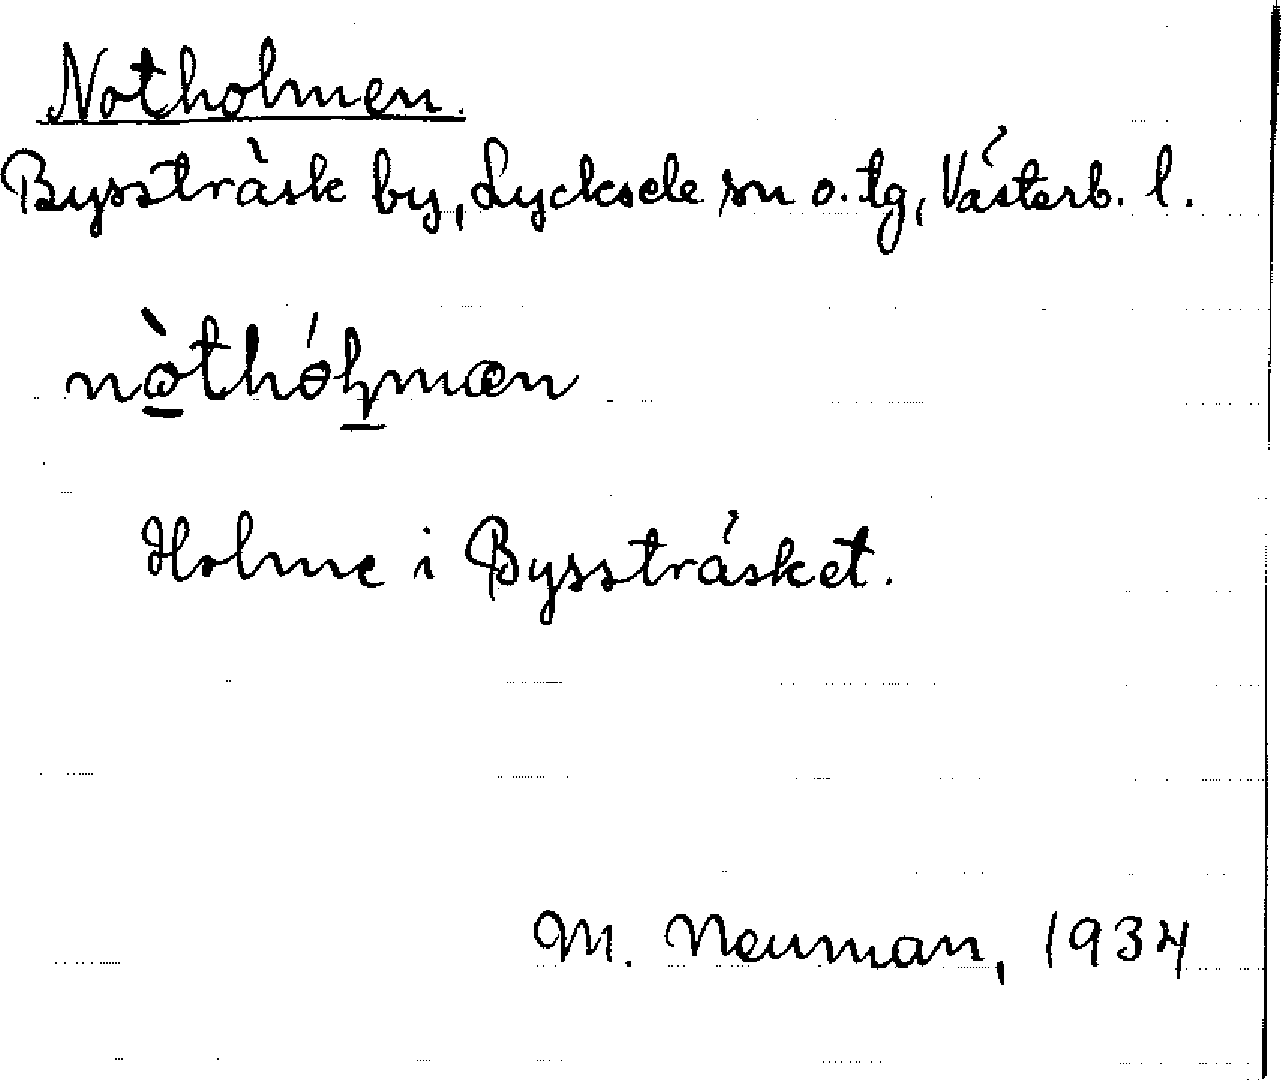 Notholmen.
Bysträsk by, Lycksele sn o. tg, Västerb. l.
nòthólmæn
Holme i Byssträsket.
M. Neuman, 1934